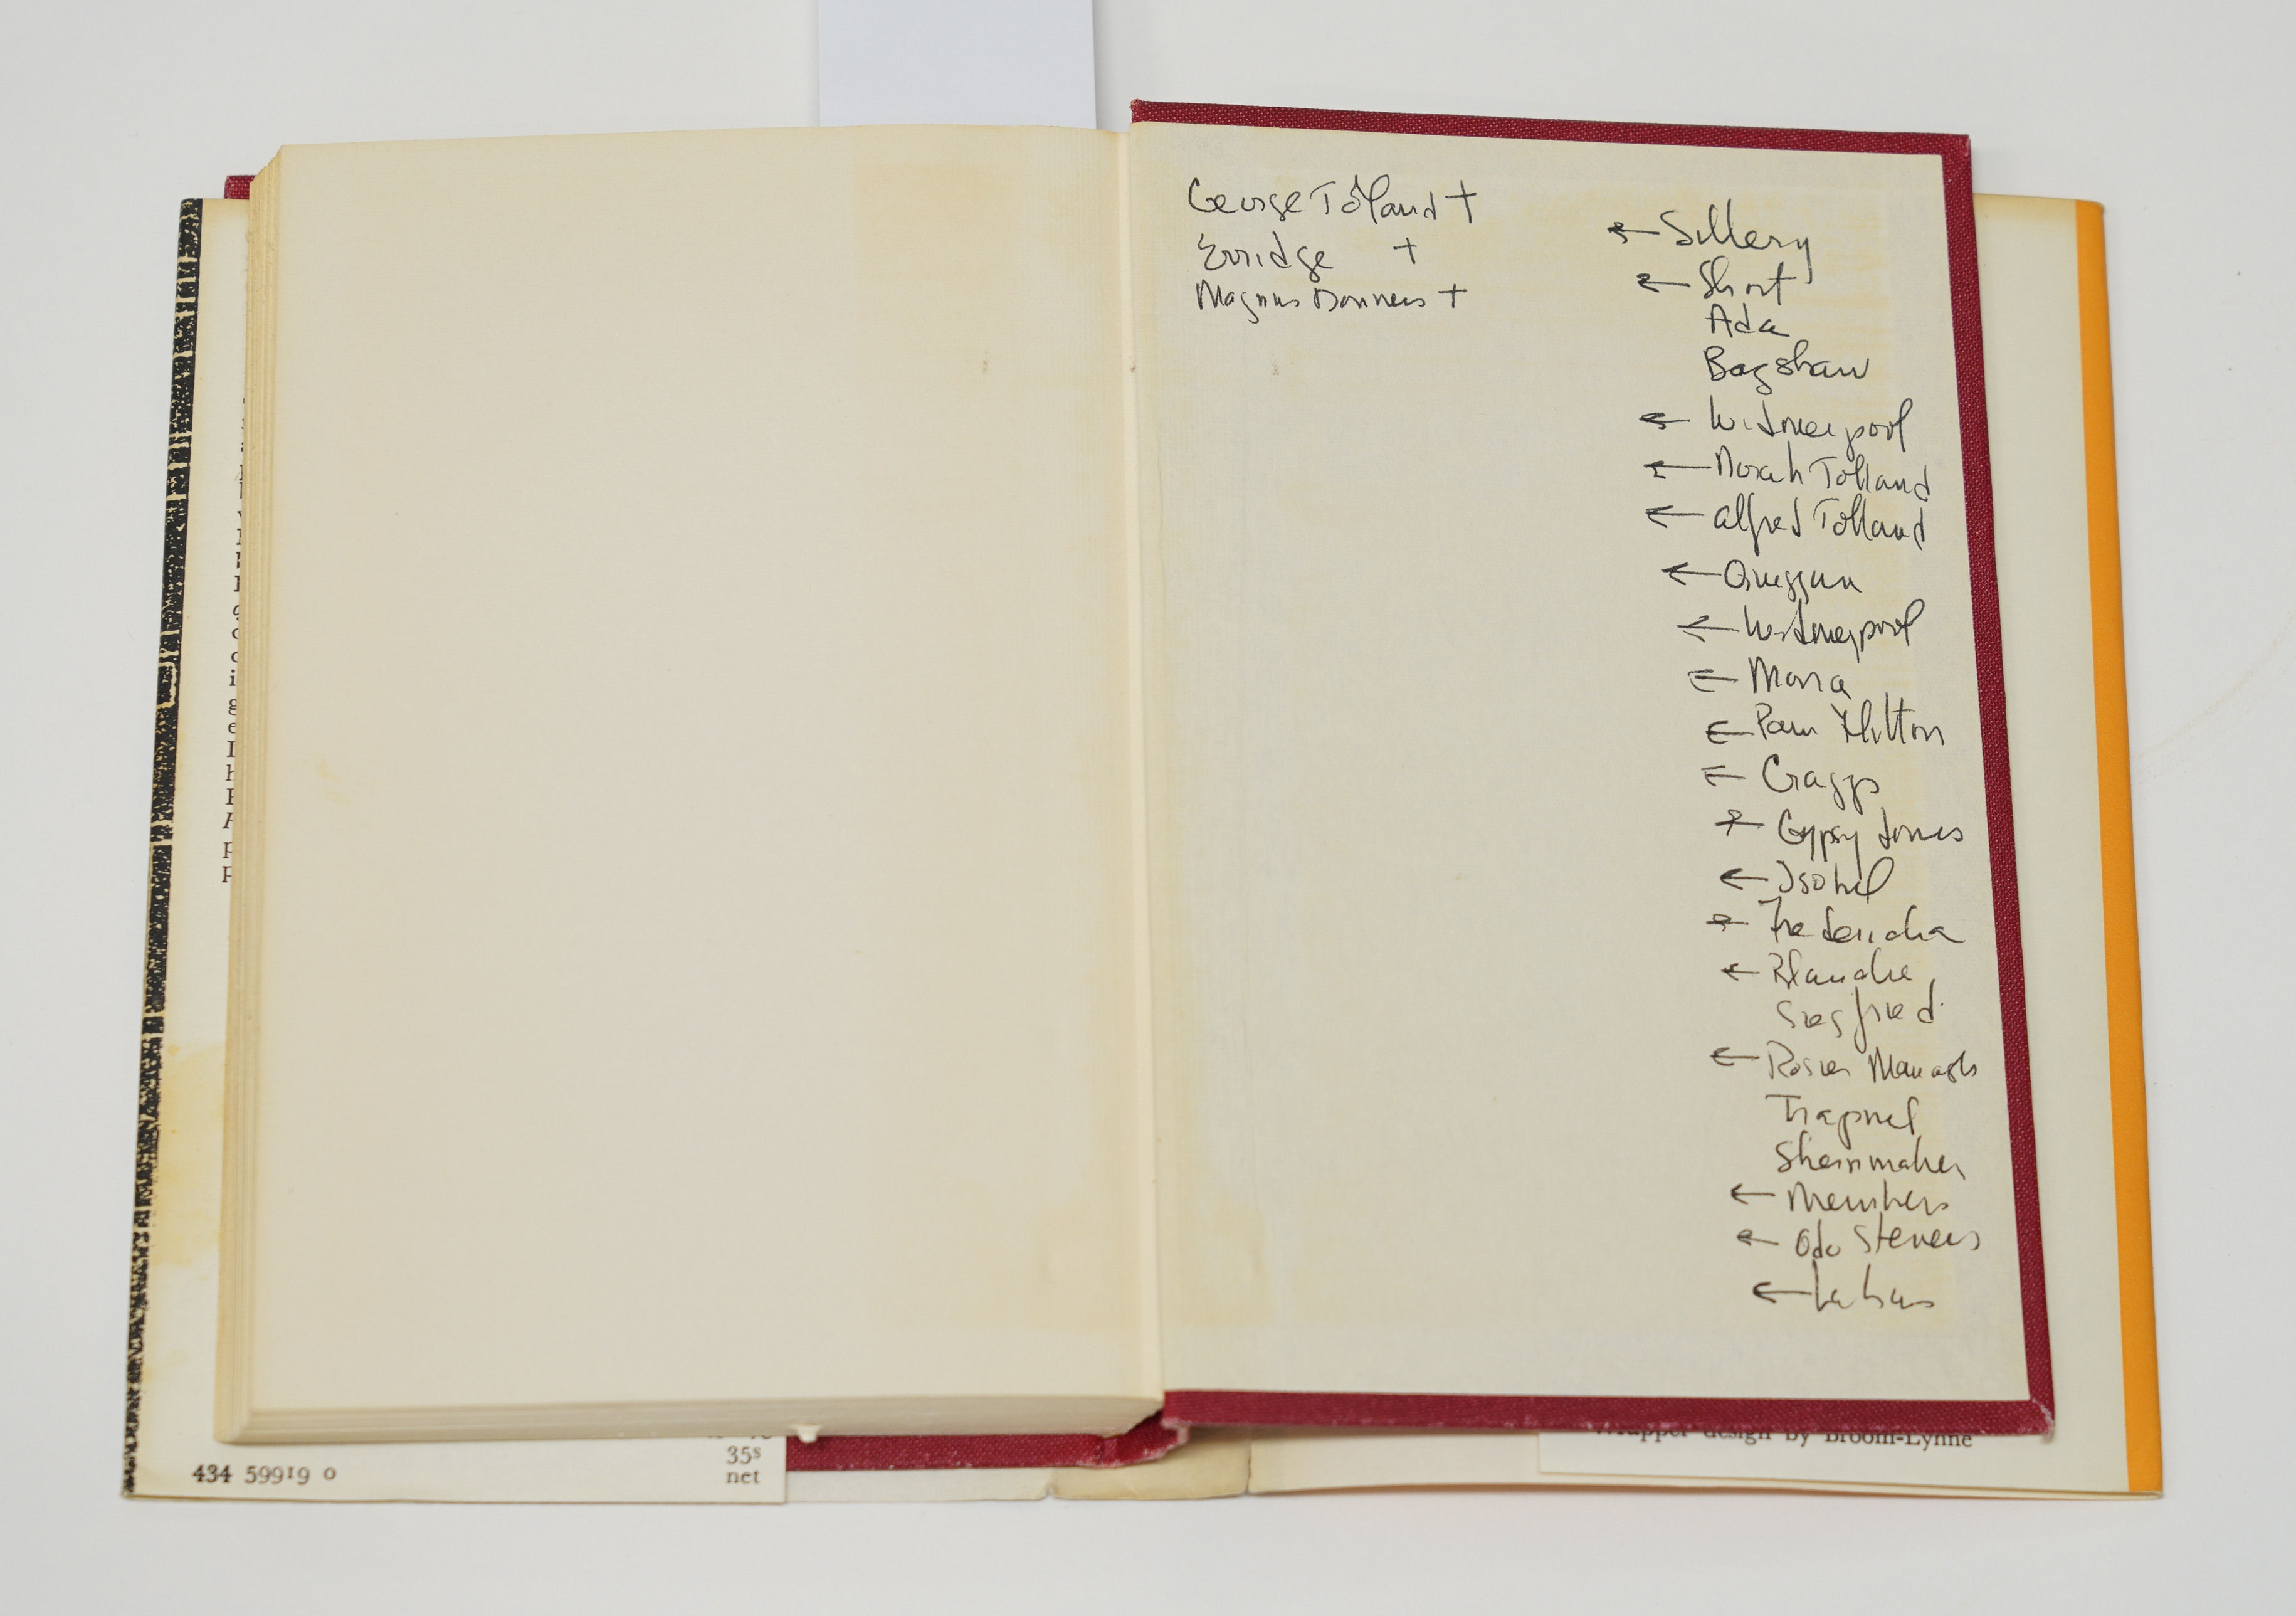 George Tolland +
Erridge +
Magnus Donners +
← Sillery
← Short
Ada
Bagshaw
← Widmerpool
← Norah Tolland
← Alfred Tolland
← Quiggin
← Widmerpool
← Mona
← Pam Flitton
← Craggs
← Gypsy Jones
← Isobel
← Frederica
← Blanche
Siegfried
← Rosie Manasch
Trapnel
Shernmaker
← Members
← Odo Stevens
434 59919 0
35s
net
Wrapper design by Broom-Lynne